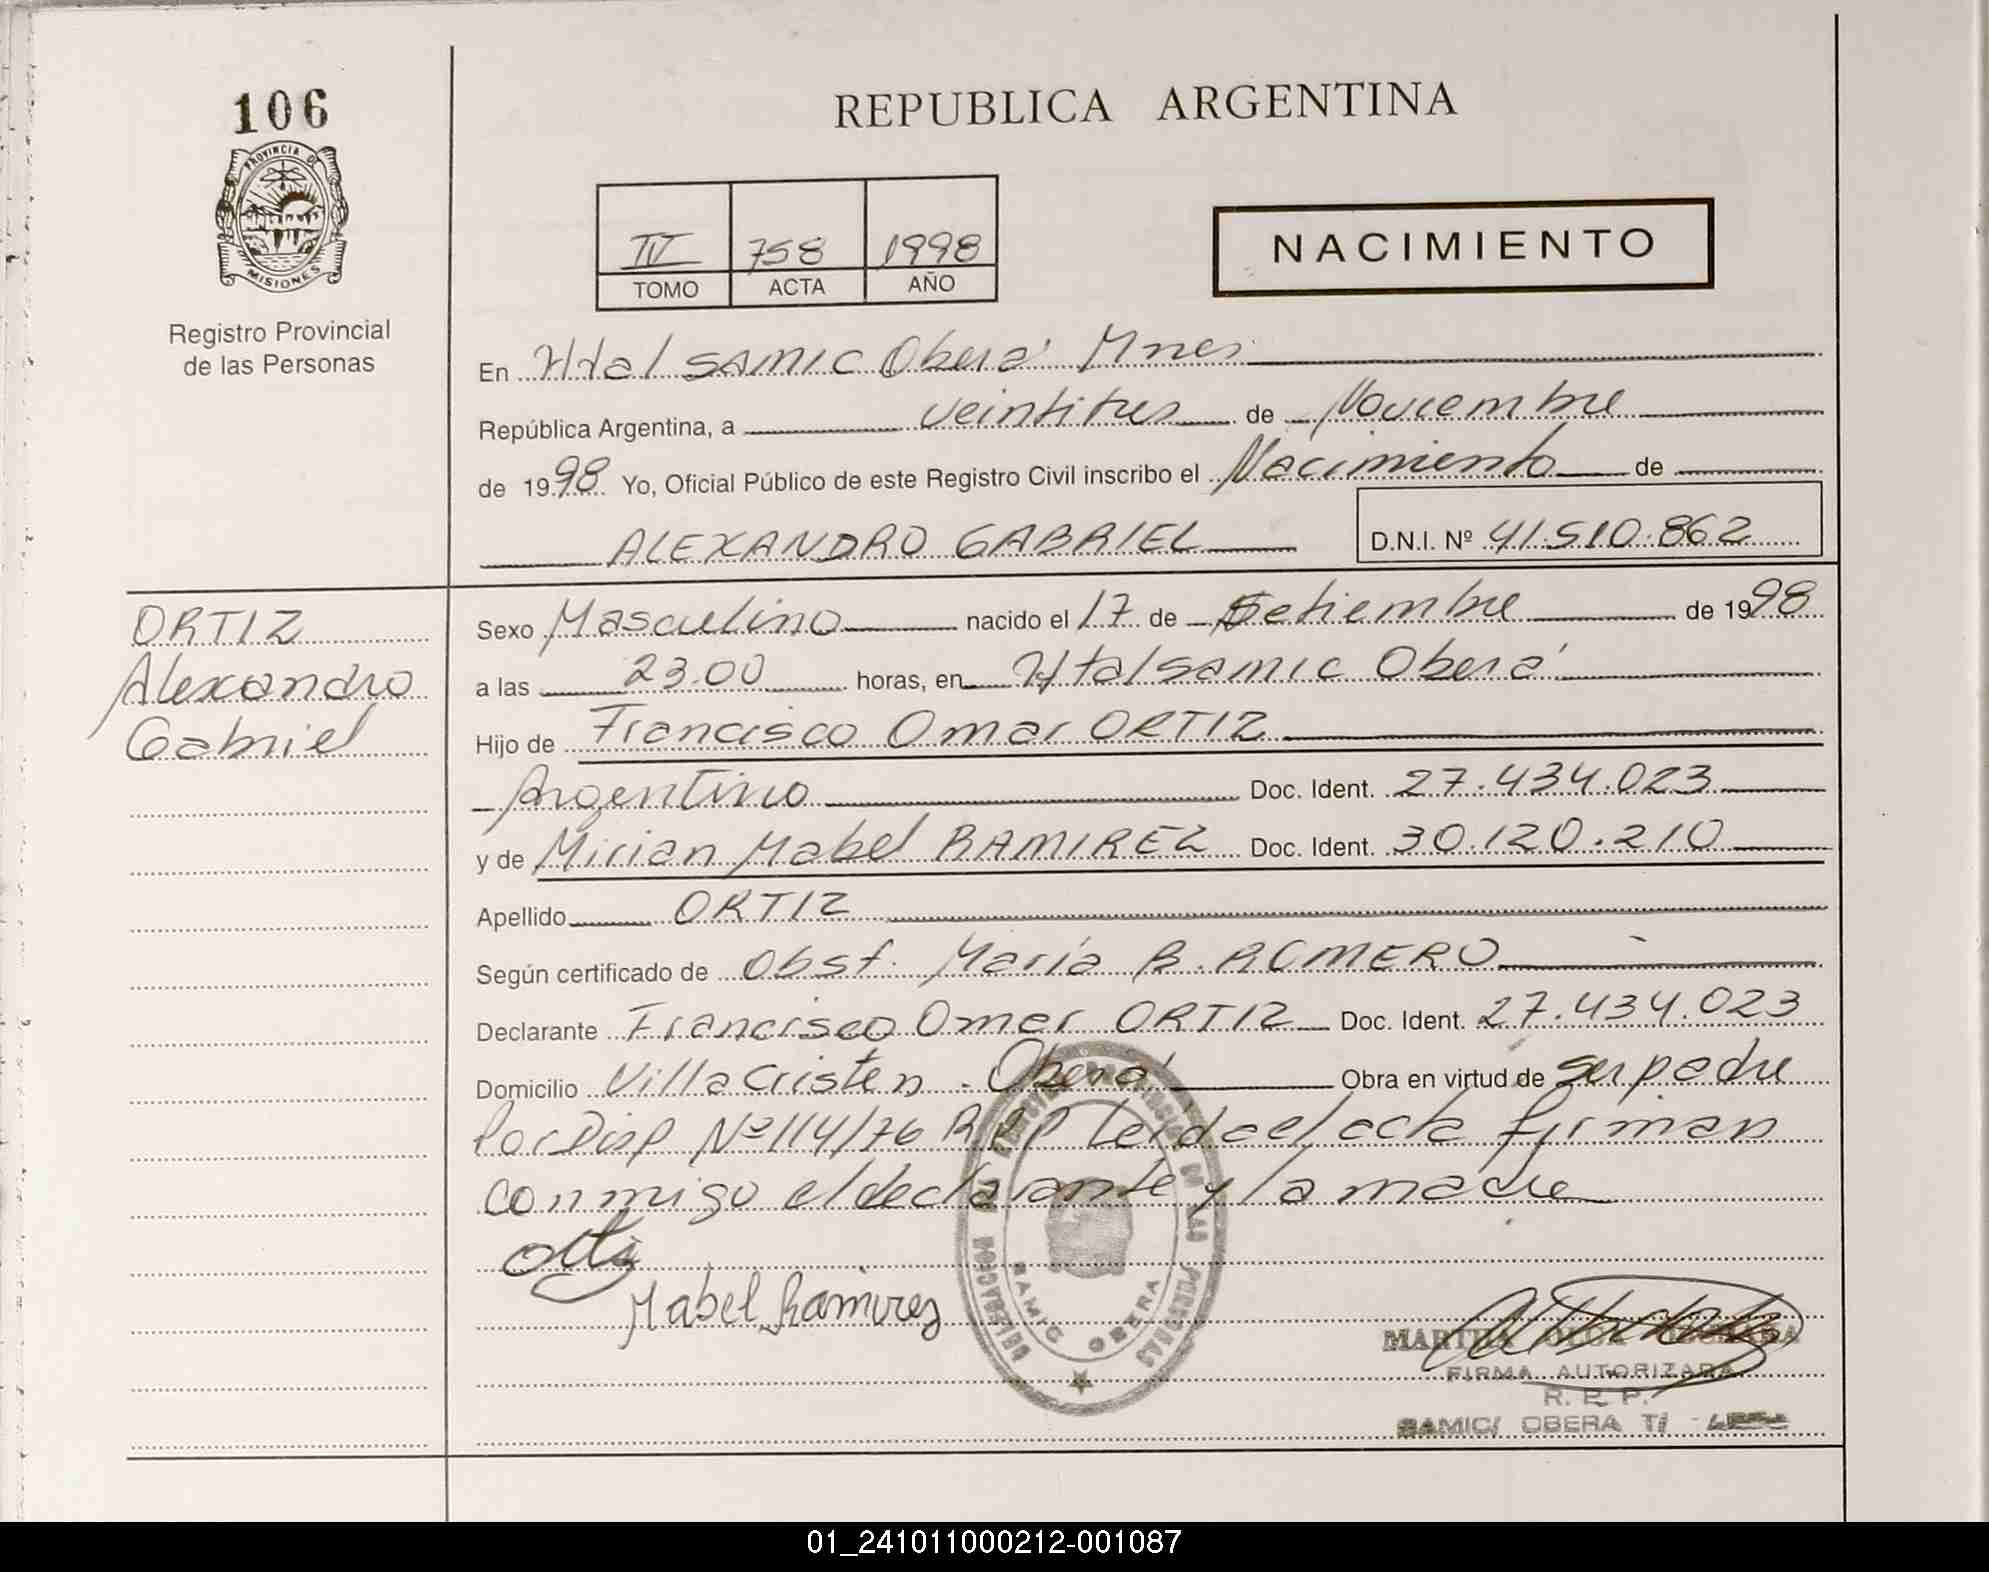 106
PROVINCIA DE
MISIONES
Registro Provincial
de las Personas
REPUBLICA ARGENTINA
IV 758 1998
TOMO ACTA AÑO
NACIMIENTO
En Htal SAMIC Oberá Mnes
República Argentina, a veintitres de Noviembre
de 1998 Yo, Oficial Público de este Registro Civil inscribo el Nacimiento de
ALEXANDRO GABRIEL D.N.I. Nº 41.510.862
ORTIZ
Alexandro
Gabriel
Sexo Masculino nacido el 17 de Setiembre de 1998
a las 23.00 horas, en Htal SAMIC Oberá
Hijo de Francisco Omar ORTIZ
Argentino Doc. Ident. 27.434.023
y de Mirian Mabel RAMIREZ Doc. Ident. 30.120.210
Apellido ORTIZ
Según certificado de Obst. María B. ROMERO
Declarante Francisco Omar ORTIZ Doc. Ident. 27.434.023
Domicilio Villa Cristen - Oberá Obra en virtud de ser padre
Por Disp Nº 114/76 R P P Leída el acta firman
conmigo el declarante y la madre
Ortiz
Mabel Ramirez
DELEGACION DEL REGISTRO PROVINCIAL DE LAS PERSONAS
SAMIC OBERA
MARTHA
FIRMA AUTORIZADA
R. P. P.
SAMIC/ OBERA
01_241011000212-001087